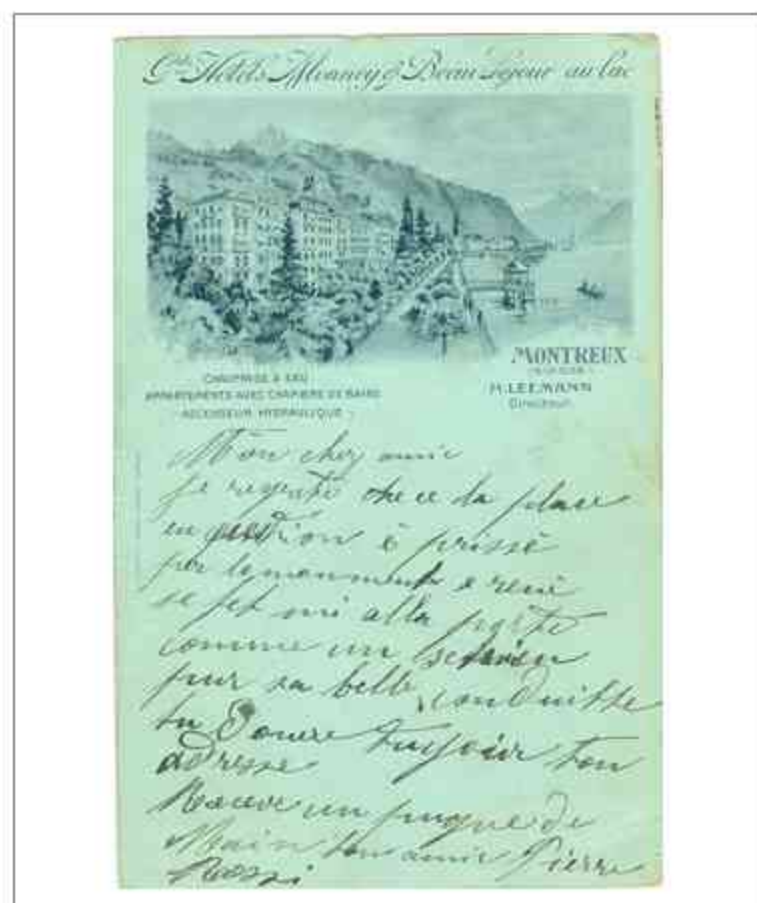 Gds Hôtels Monney & Beau Séjour au lac
MONTREUX
CHAUFFAGE A EAU
APPARTEMENTS AVEC CHAMBRE DE BAINS
ASCENSEUR HYDRAULIQUE
H. LEEMANN
Directeur
Mon cher amie
je regrete che la place
en question è prissé
per le momment e rené
se fet mi alla porte
comme un
pur sa belle conduitte
tu Donere tujour ton
adresse
Receve un pugne de
Main ton amie Pierre
Rossi